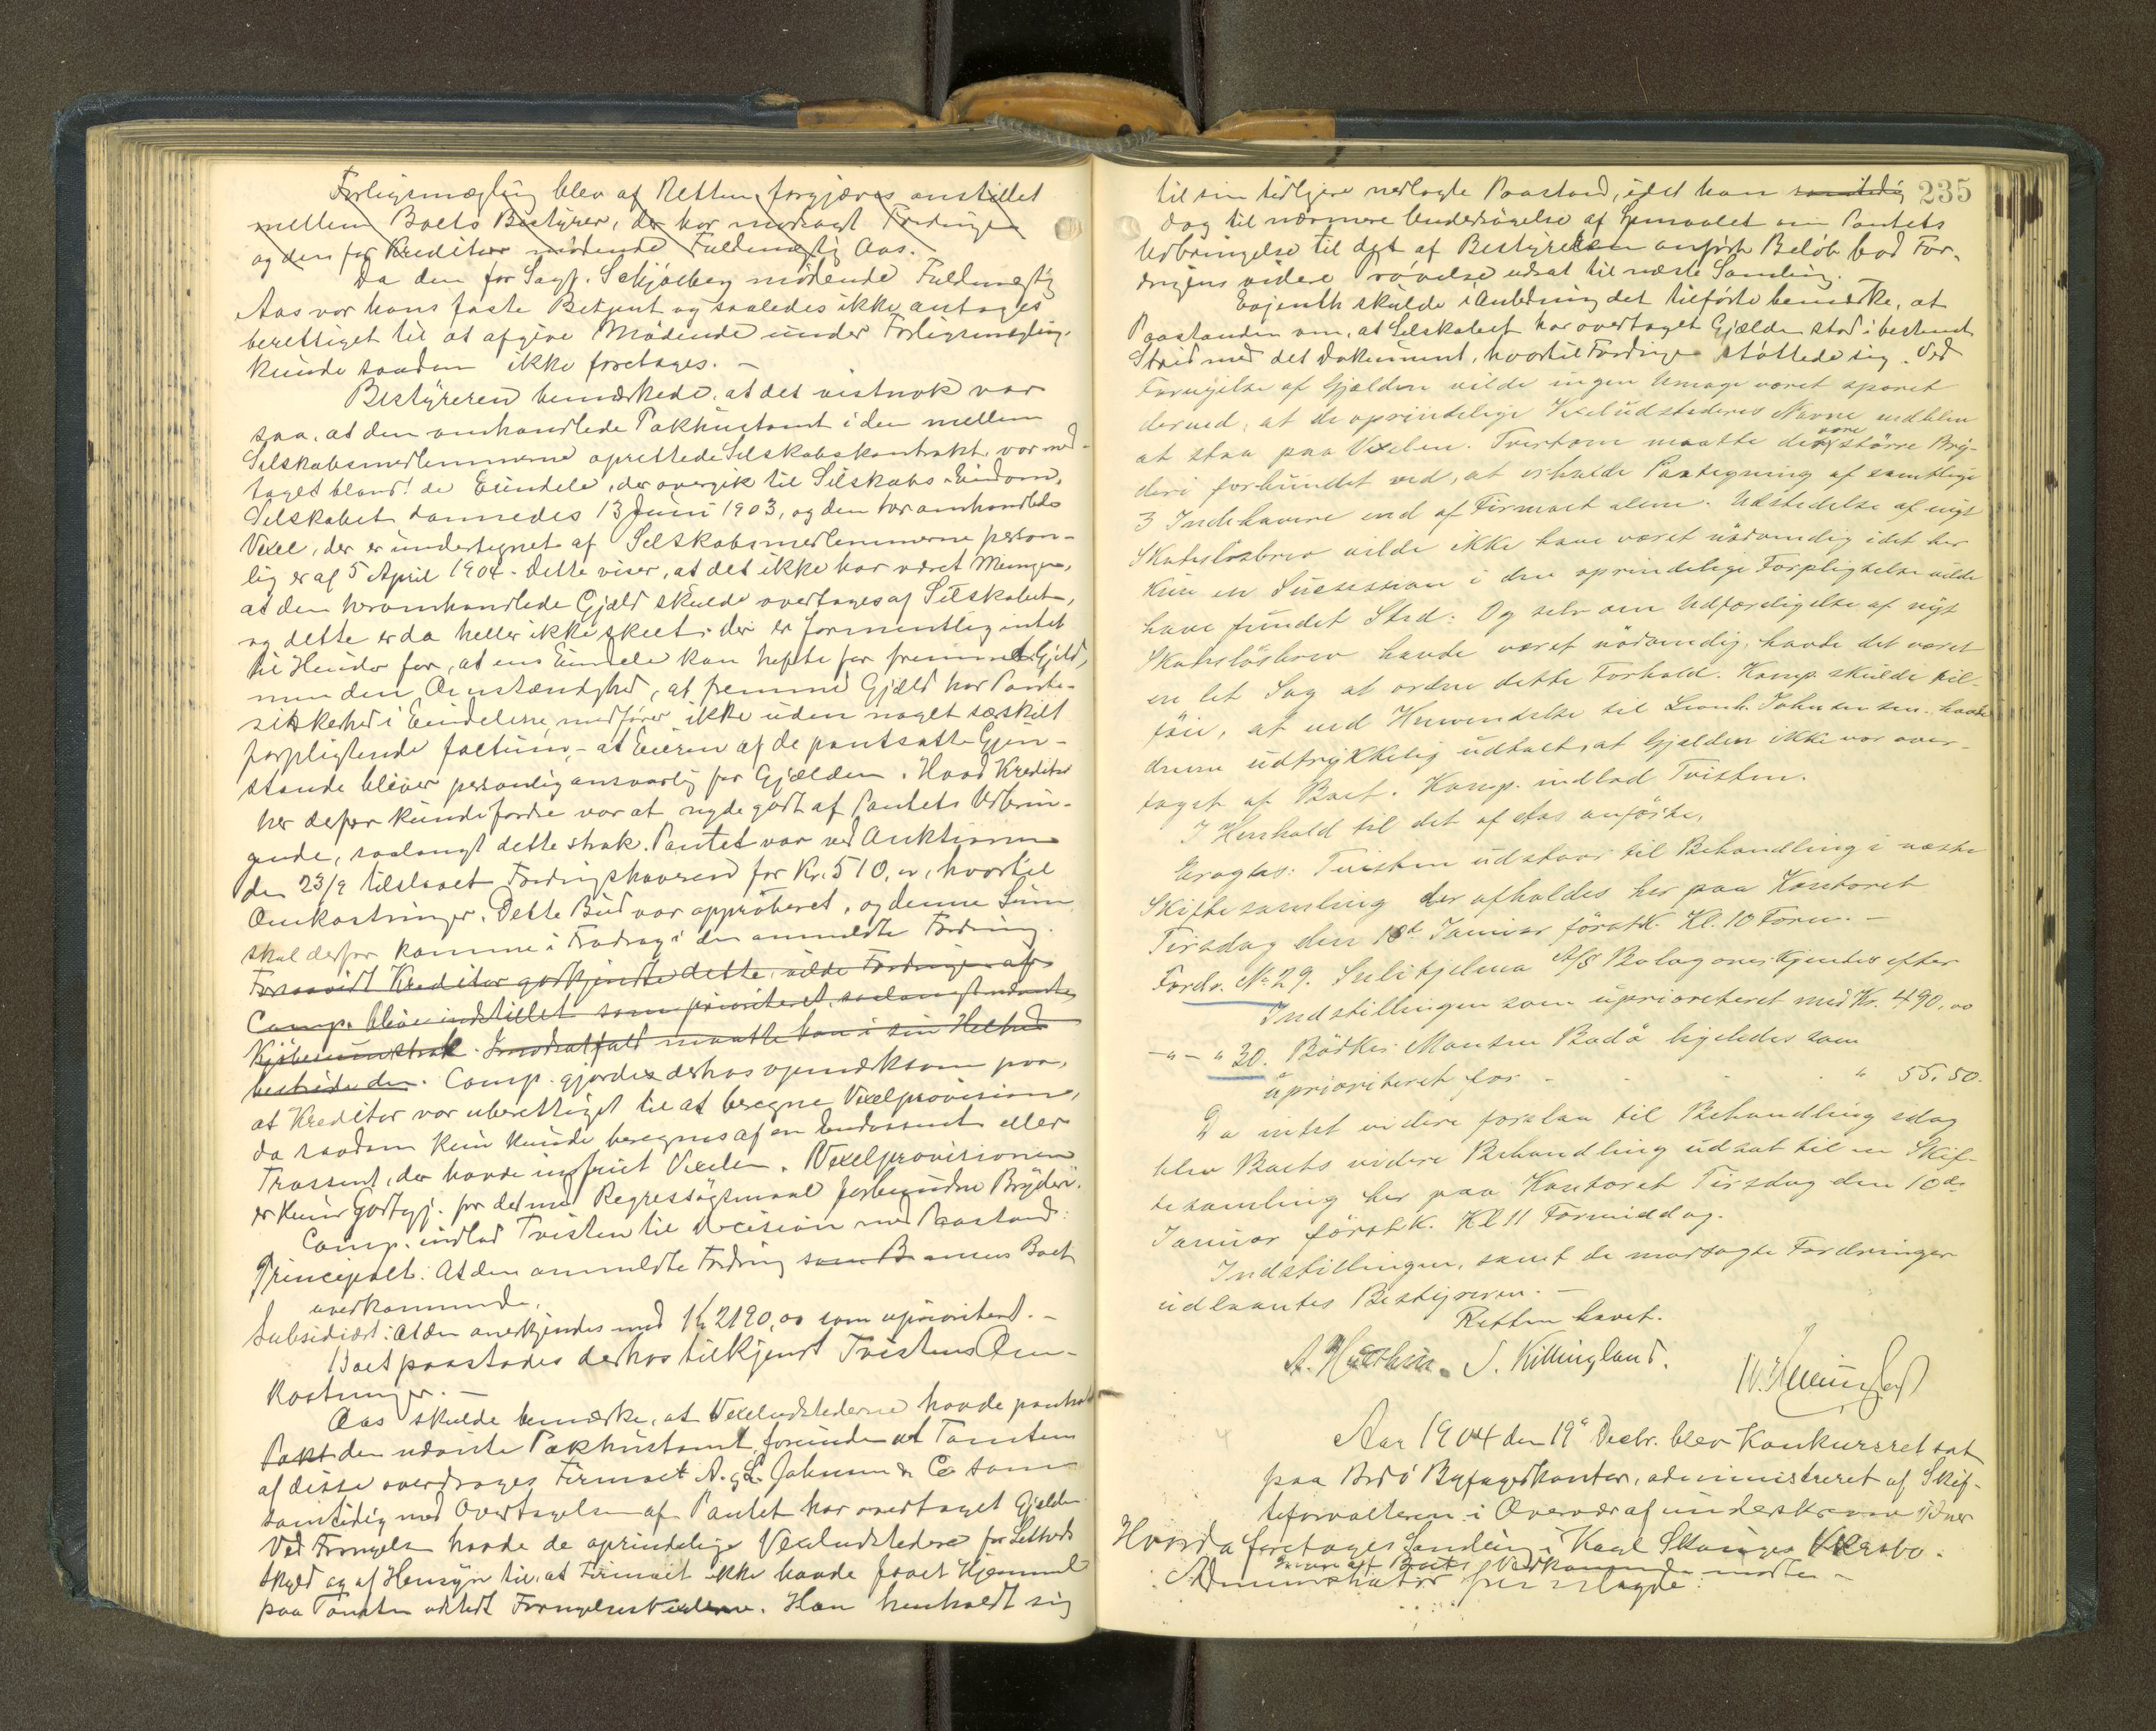 Forligsmægling blev af Retten forgjæves anstillet
mellem Boets Bestyrer, der har modsagt Fordringen
og den for Kreditor mødende Fuldmægtig Aas.
Da den for Sagf. Schjølberg mødende Fuldmægtig
Aas var hans faste Betjent og saaledes ikke antages
berettiget til at afgive Mødende under Forligsmægling,
kunde saadan ikke foretages. –
Bestyreren bemærkede, at det vistnok var
saa, at den omhandlede Pakhustomt i den mellem
Selskabsmedlemmerne oprettede Selskabskontrakt var med-
taget blandt de Eiendele, der overgik til Selskabs-Eiendom.
Selskabet dannedes 13 Juni 1903, og den her omhandlede
Vexel, der er undertegnet af Selskabsmedlemmerne person-
lig er af 5 April 1904. Dette viser, at det ikke har været Meningen,
at den heromhandlede Gjæld skulde overtages af Selskabet,
og dette er da heller ikke skeet. Der er formentlig intet
til Hinder for, at ens Eiendele kan hefte for fremmed Gjæld,
men den Omstændighed, at fremmed Gjæld har Pante-
sikkerhed i Eiendelene, medfører ikke uden noget særskilt
forpligtende factum, – at Eieren af de pantsatte Gjen-
stande bliver personlig ansvarlig for Gjælden. Hvad Kreditor
her derfor kunde fordre var at nyde godt af Pantets Udbrin-
gende, saalangt dette strak. Pantet var ved Auktionen
den 23/9 tilslaaet Fordringshaveren for Kr. 510,00, hvortil
Omkostninger. Dette Bud var approberet, og denne Sum
skal derfor komme i Fradrag i den anmeldte Fordring.
Forsaavidt Kreditor godkjendte dette, vilde Fordringen af
Comp. blive indstillet som prioriteret, saalangt nævnte
Kjøbesum strak. I modsat fald maatte han i sin Helhed
bestride den. Comp. gjorde derhos opmærksom paa,
at Kreditor var uberettiget til at beregne Vexelprovision,
da saadan kun kunde beregnes af en Endossent eller
Trassent, der havde indfriet Vexelen. Vexelprovisionen
er kun Godtgj. for det med Regressøgsmaal forbundne Bryderi.
Comp. indlod Tvisten til Decision med Paastand:
Principalt: At den anmeldte Fordring som Boets uvedkommende.
Subsidiært: At den anerkjendes med Kr 2190,00 som uprioriteret. –
Boet paastodes derhos tilkjendt Tvistens Om-
kostninger. –
Aas skulde bemærke, at Vexeludstederne havde pantsat
den udviste Pakhustomt, forinden at Tomten
af disse overdrages Firmaet A. & L. Johnsen & Co som
samtidig med Overtagelsen af Pantet har overtaget Gjælden.
Ved Fornyelsen havde de oprindelige Vexeludstedere for Letheds
Skyld og af Hensyn til, at Firmaet ikke havde faaet Hjemmel
paa Tomten udstedt Fornyelsesvexlerne. Han henholdt sig
235
til sin tidligere nedlagte Paastand, idet han samtidig
dog til nærmere Undersøgelse af Spmaalet om Pantets
Udbringelse til det af Bestyreren anførte Beløb bad For-
dringens videre Prøvelse udsat til næste Samling. –
Eventh skulde i Anledning det tilførte bemærke, at
Paastanden om, at Selskabet har overtaget Gjælden stod i bestemt
Strid med det Dokument, hvortil Fordringen støttede sig. Ved
Fornyelse af Gjælden vilde ingen Umage været sparet
derved, at de oprindelige Vexeludstederes Navne vedblev
at staa paa Vexelen. Tvertom maatte det være større Bry-
deri forbundet ved, at erholde Paategning af samtlige
3 Indehavere end af Firmaet alene. Udstedelse af nyt
Skadesløsbrev vilde ikke have været nødvendig idet her
kun en Succession i den oprindelige Forpligtelse vilde
have fundet Sted: Og selv om Udfærdigelse af nyt
Skadesløsbrev havde været nødvendig, havde det været
en let Sag at ordne dette Forhold. Komp. skulde til-
føie, at ved Henvendelse til Leonh. Johnsen sen. havde
denne udtrykkelig udtalt, at Gjælden ikke var over-
taget af Boet. Komp. indlod Tvisten.
I Henhold til det af Aas anførte,
Eragtes: Tvisten udstaar til Behandling i næste
Skiftesamling der afholdes her paa Kontoret
Tirsdag den 10de Januar førstk. Kl. 10 Form. –
Fordr. No 29. Sulitjelma A/S Bolag anerkjentes efter
Indstillingen som uprioriteret med Kr. 490,00
– " – " 30. Bødker Monsen Bodø ligeledes som
uprioriteret for - - - " 55.50.
Da intet videre forelaa til Behandling idag
blev Boets videre Behandling udsat til en Skif-
tesamling her paa Kontoret Tirsdag den 10de
Januar førstk. Kl 11 Formiddag.
Indstillingen, samt de modsagte Fordringer
udlaantes Bestyreren. –
Retten hævet.
S. Killingland.
Aar 1904 den 19de Decbr. blev Konkursret sat
paa Bodø Byfogedkontor, administreret af Skif-
teforvalteren i Overvær af underskrevne Vidner
Hvorda foretoges Samling i Karl Skonges
Ingen af Boets Vedkommende mødte –
Administrator fremlagde: